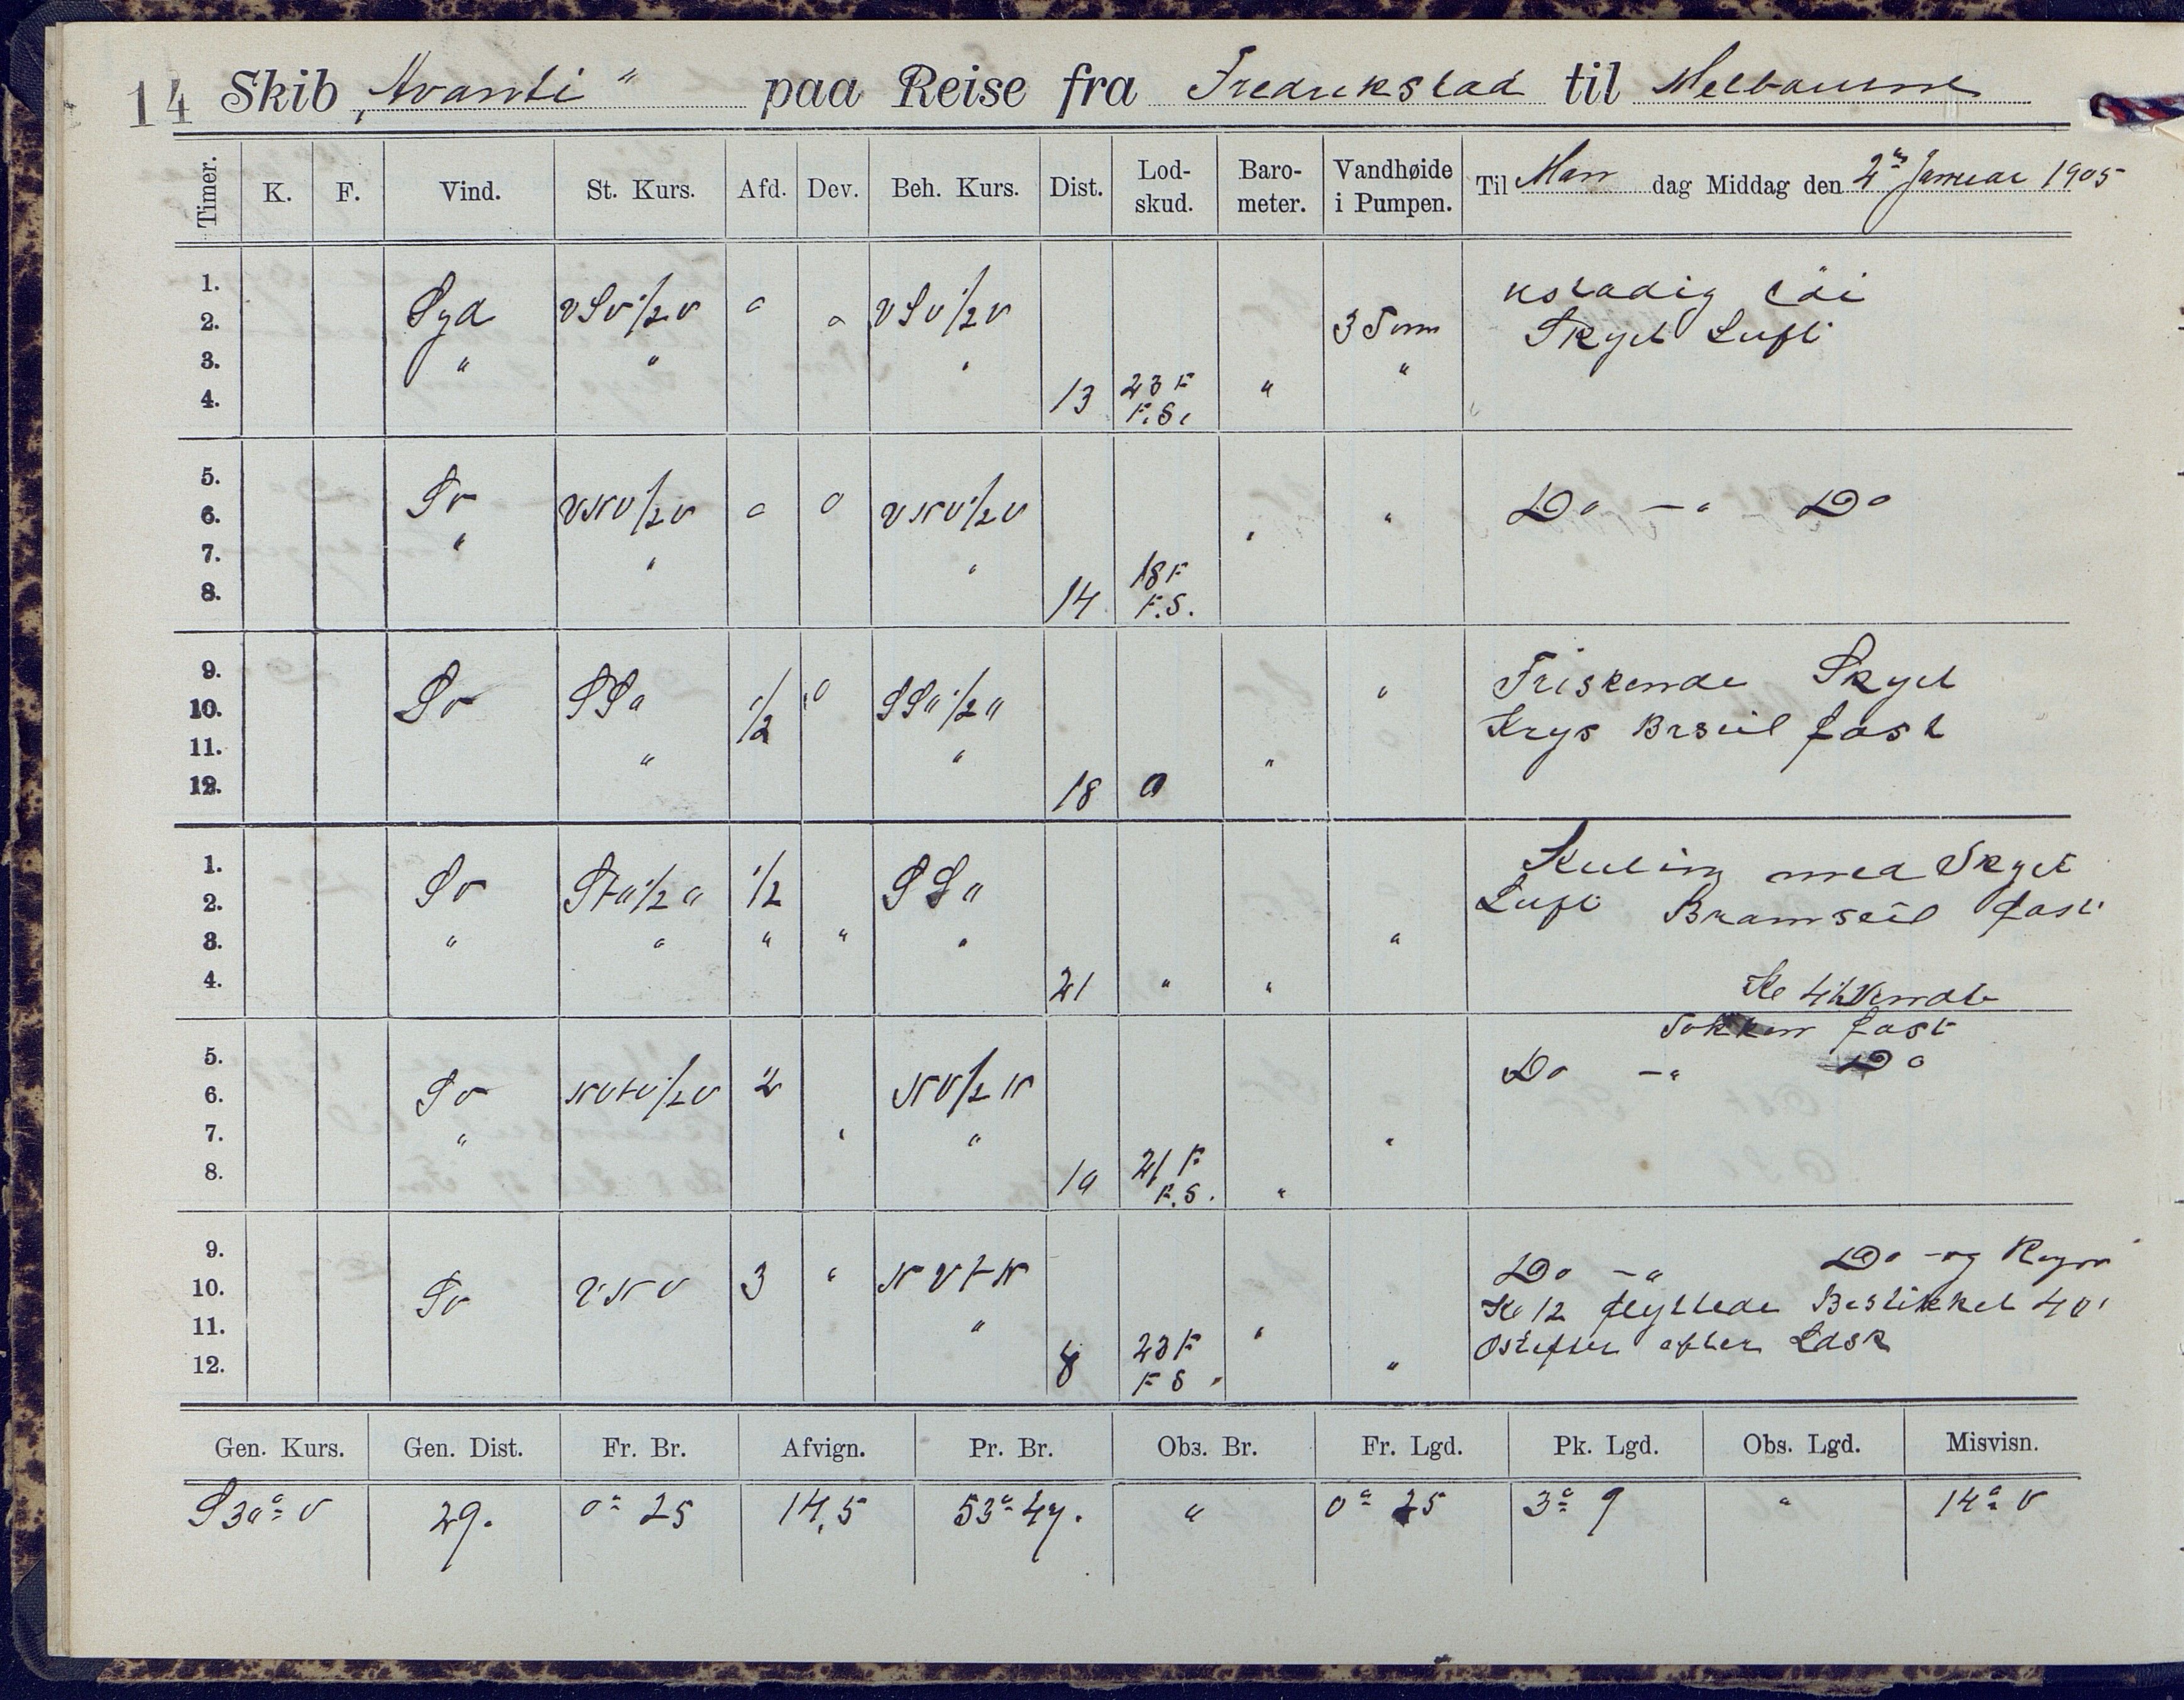 14 Skib „Avanti“ paa Reise fra Fredrikstad til Melbourne
Timer. K. F. Vind. St. Kurs. Afd. Dev. Beh. Kurs. Dist. Lod-skud. Baro-meter. Vandhøide i Pumpen. Til Man dag Middag den 2 Januar 1905
1. ustadig
2. Syd VSV 1/2 V 0 0 VSV 1/2 V 3 Tom Skyet Luft
3. " " " "
4. 13 23 F "
F.S.
5.
6. Sv VNV 1/2 V 0 0 VNV 1/2 V " " Do - " Do
7. " " "
8. 14 18 F
F.S.
9. " Friskende Skyet
10. Sv SSO 1/2 0 SSO 1/2 O Krys Brseil fast
11. " " "
12. 18 0
1. Kuling med Skyet
2. Sv StO 1/2 O 1/2 SSO Luft Bramseil fast
3. " " " " " "
4. 21 " " Kl 4 Vendt
fast
5. Do - " Do
6. Sv NVtV 1/2 V 2 NV 1/2 N
7. " " " "
8. 10 21 F "
F.S.
9. Do - " Do - og Regn
10. Sv VNV 3 " NVtN Kl 12 flyttede Bestikket 40'
11. " " Ostefter efter Lodsk
12. 8 23 F "
F S.
Gen. Kurs. Gen. Dist. Fr. Br. Afvign. Pr. Br. Obs. Br. Fr. Lgd. Pk. Lgd. Obs. Lgd. Misvisn.
S 30° V 29. 0° 25 14,5 53° 47. " 0° 25 3° 9 " 14° V